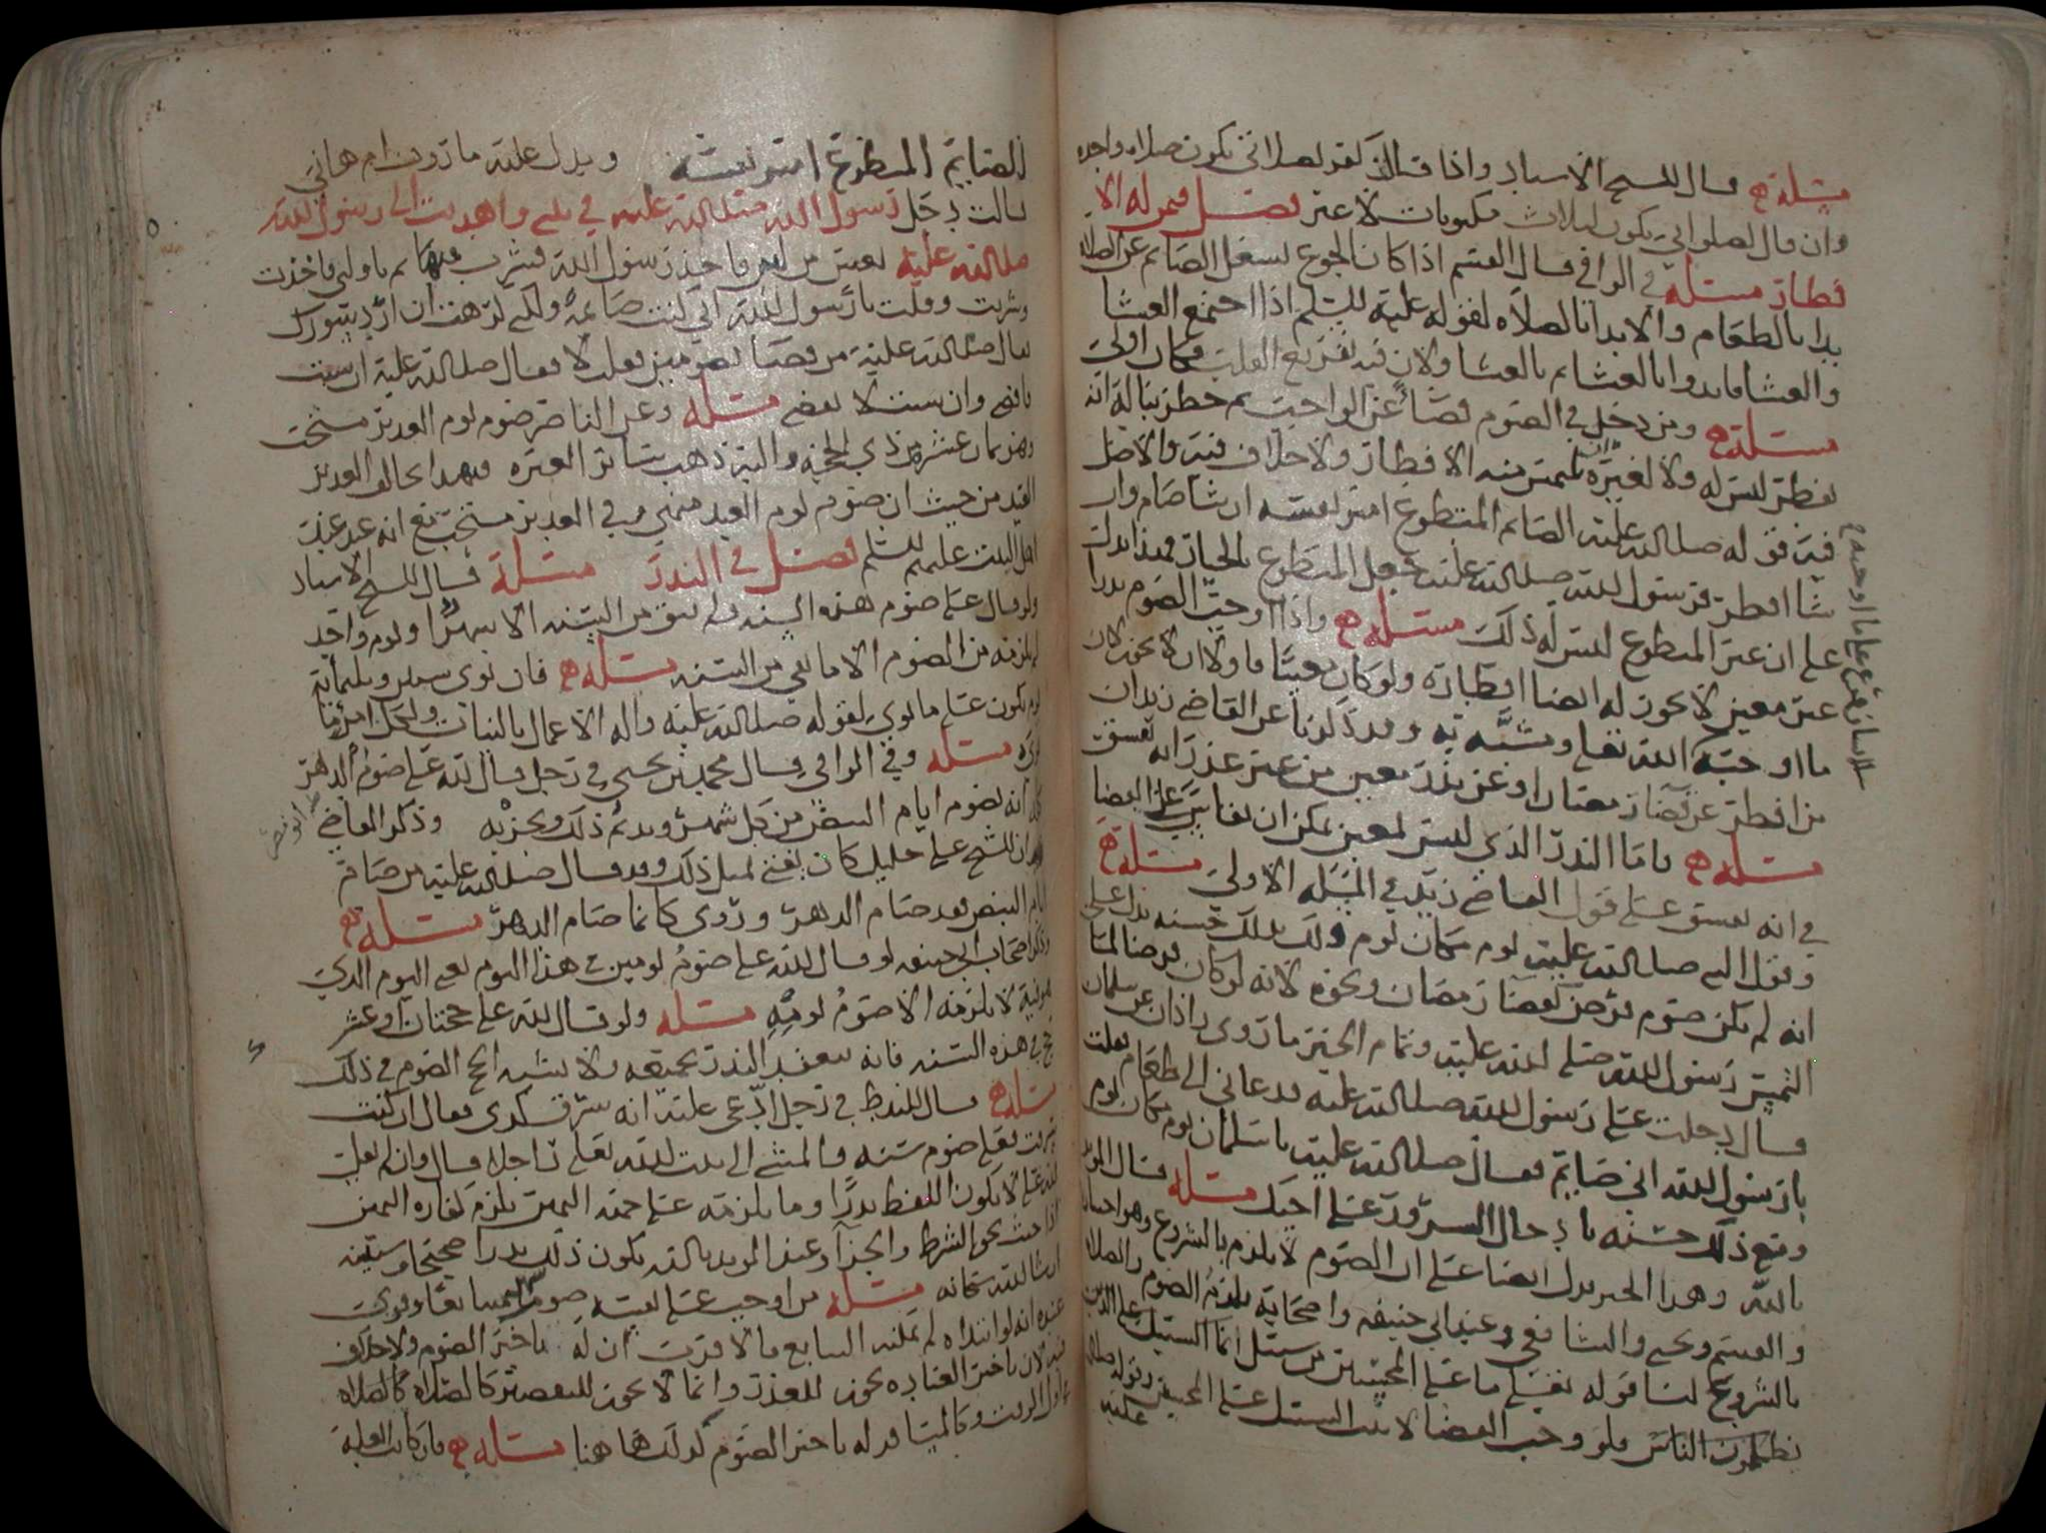 مسئلة قال الشيخ الاستاذ واذا قال لك لغد لصلاتي يكون صلاه واحده
وان قال لصلواتي يكون لثلاث مكتوبات لا غير فصل فيمن له الا
فطار مسئلة في الوافي قال القسم اذا كان الجوع يشغل الصائم عن الصلاه
بدا بالطعام والا بدا بالصلاه لقوله عليه السلم اذا اجتمع العشا
والعشا فابدوا بالعشا ثم بالعشا ولان فيه تفريع القلب فكان اولى
مسئلة ومن دخل في الصوم قضاً عن الواجب ثم خطر بباله انه
يفطر ليس له ولا لغيره ان يلتمس منه الافطار ولا خلاف فيه والاصل
فيه قوله صلى الله عليه الصائم المتطوع امير نفسه ان شا صام وان
شا افطر فرسول الله صلى الله عليه جعل المتطوع بالخيار فهذا يدل
على ان غير المتطوع ليس له ذلك مسئلة واذا اوجب الصوم نذرا
غير معين لا يجوز له ايضا افطاره ولو كان معينا فاولا ان لا يجوز لان
ما اوجبه الله تعلى ومشبه به وقد ذكرنا عن القاضي زيد ان
من افطر عن قضا رمضان او عن نذر معين من غير عذر انه يفسق
مسئلة فاما النذر الذي ليس بمعين يمكن ان يقاس على القضا
في انه يفسق على قول القاضي زيد في المسئله الاولى مسئلة
وقول النبي صلى الله عليه يوم مكان يوم ولك بذلك حسنه يدل على
انه لم يكن صوم فرض كقضا رمضان ونحوه لانه لو كان فرضا لما
التمس رسول الله صلى الله عليه وتمام الخبر ما روى زاذان عن سلمان
قال دخلت على رسول الله صلى الله عليه فدعاني الى طعام فقلت
يا رسول الله اني صائم فقال صلى الله عليه يا سلمان يوم مكان يوم
ومع ذلك حسنه بادخال السرور على اخيك مسئلة قال المويد
بالله وهذا الخبر يدل ايضا على ان الصوم لا يلزم بالشروع وهو اختيار
والقسم ويحيى والشافعي وعند ابي حنيفه واصحابه يلزم الصوم والصلاه
بالشروع لنا قوله تعلى ما على المحسنين من سبيل انما السبيل على الذين
يظلمون الناس ولو وجب القضا لاثبت السبيل على المحسنين وقوله صلى الله عليه
الصايم المتطوع امير نفسه ويدل عليه ما روت ام هاني
قالت دخل رسول الله صلى الله عليه في بيتي واهديت الى رسول الله
صلى الله عليه بعس من لبن فاخذ رسول الله فشرب منها ثم ناولني فاخذت
وشربت وقلت يا رسول الله اني كنت صائمة ولكني كرهت ان ارد سورك
قال صلى الله عليه من قضا تصومين فقلت لا فقال صلى الله عليه ان شيت
فاقضي وان شيت لا تقضي مسئلة وعن الناصر صوم يوم الغدير مستحب
وهو ثمان عشر من ذي الحجه واليه ذهب سائر العتره فهذا يخالف الغدير
العيد من حيث ان صوم يوم العيد منهي وفي الغدير مستحب مع انه عيد عند
اهل البيت عليهم السلم فصل في النذر مسئلة قال الشيخ الاستاذ
ولو قال علي صوم هذه السنه ولم يبق من السنه الا شهرا ويوم واحد
لم يلزمه من الصوم الا ما بقي من السنه مسئلة فان نوى ستين وثلثمائة
يوم يكون على ما نوى لقوله صلى الله عليه واله الاعمال بالنيات ولكل امرء ما
نوى مسئلة وفي الوافي قال محمد بن يحيى في رجل قال لله علي صوم الدهر
انه يصوم ايام البيض من كل شهر ويدم ذلك ويجزيه وذكر القاضي
ان الشيخ علي خليل كان يفتي بمثل ذلك وقد قال صلى الله عليه من صام
ايام البيض فقد صام الدهر وروى كانما صام الدهر مسئلة
وذكر اصحاب ابي حنيفه لو قال لله علي صوم يومين في هذا اليوم يعني اليوم الذي
هو فيه لا يلزمه الا صوم يومه مسئلة ولو قال لله علي حجتان او عشر
حجج في هذه السنه فانه ينعقد النذر بجميعه ولا يشبه الحج الصوم في ذلك
مسئلة قال في رجل ادعى عليه انه سرق كذى فقال ان كنت
سرقت فعلي صوم سنه والمشي الى بيت الله تعلى راجلا قال وان لم يقل
لله علي لا يكون اللفظ نذرا وما يلزمه على جهه اليمين يلزم كفاره اليمين
اذا حنث بحق الشرط والجزا وعند المويد بالله يكون ذلك نذرا صحيحا وسنبينه
ان شا الله سبحانه مسئلة من اوجب على نفسه صوم متتابعا ونوى
عنده انه لو ابتداه لم يمكنه التتابع فالاقرب ان له تاخير الصوم ولا خلاف
فيه لان تاخير العباده يجوز للعذر وانما لا يجوز للتقصير كالصلاه
في اول الوقت وكما له تاخير الصوم كذلك هاهنا مسئلة فان كانت العله